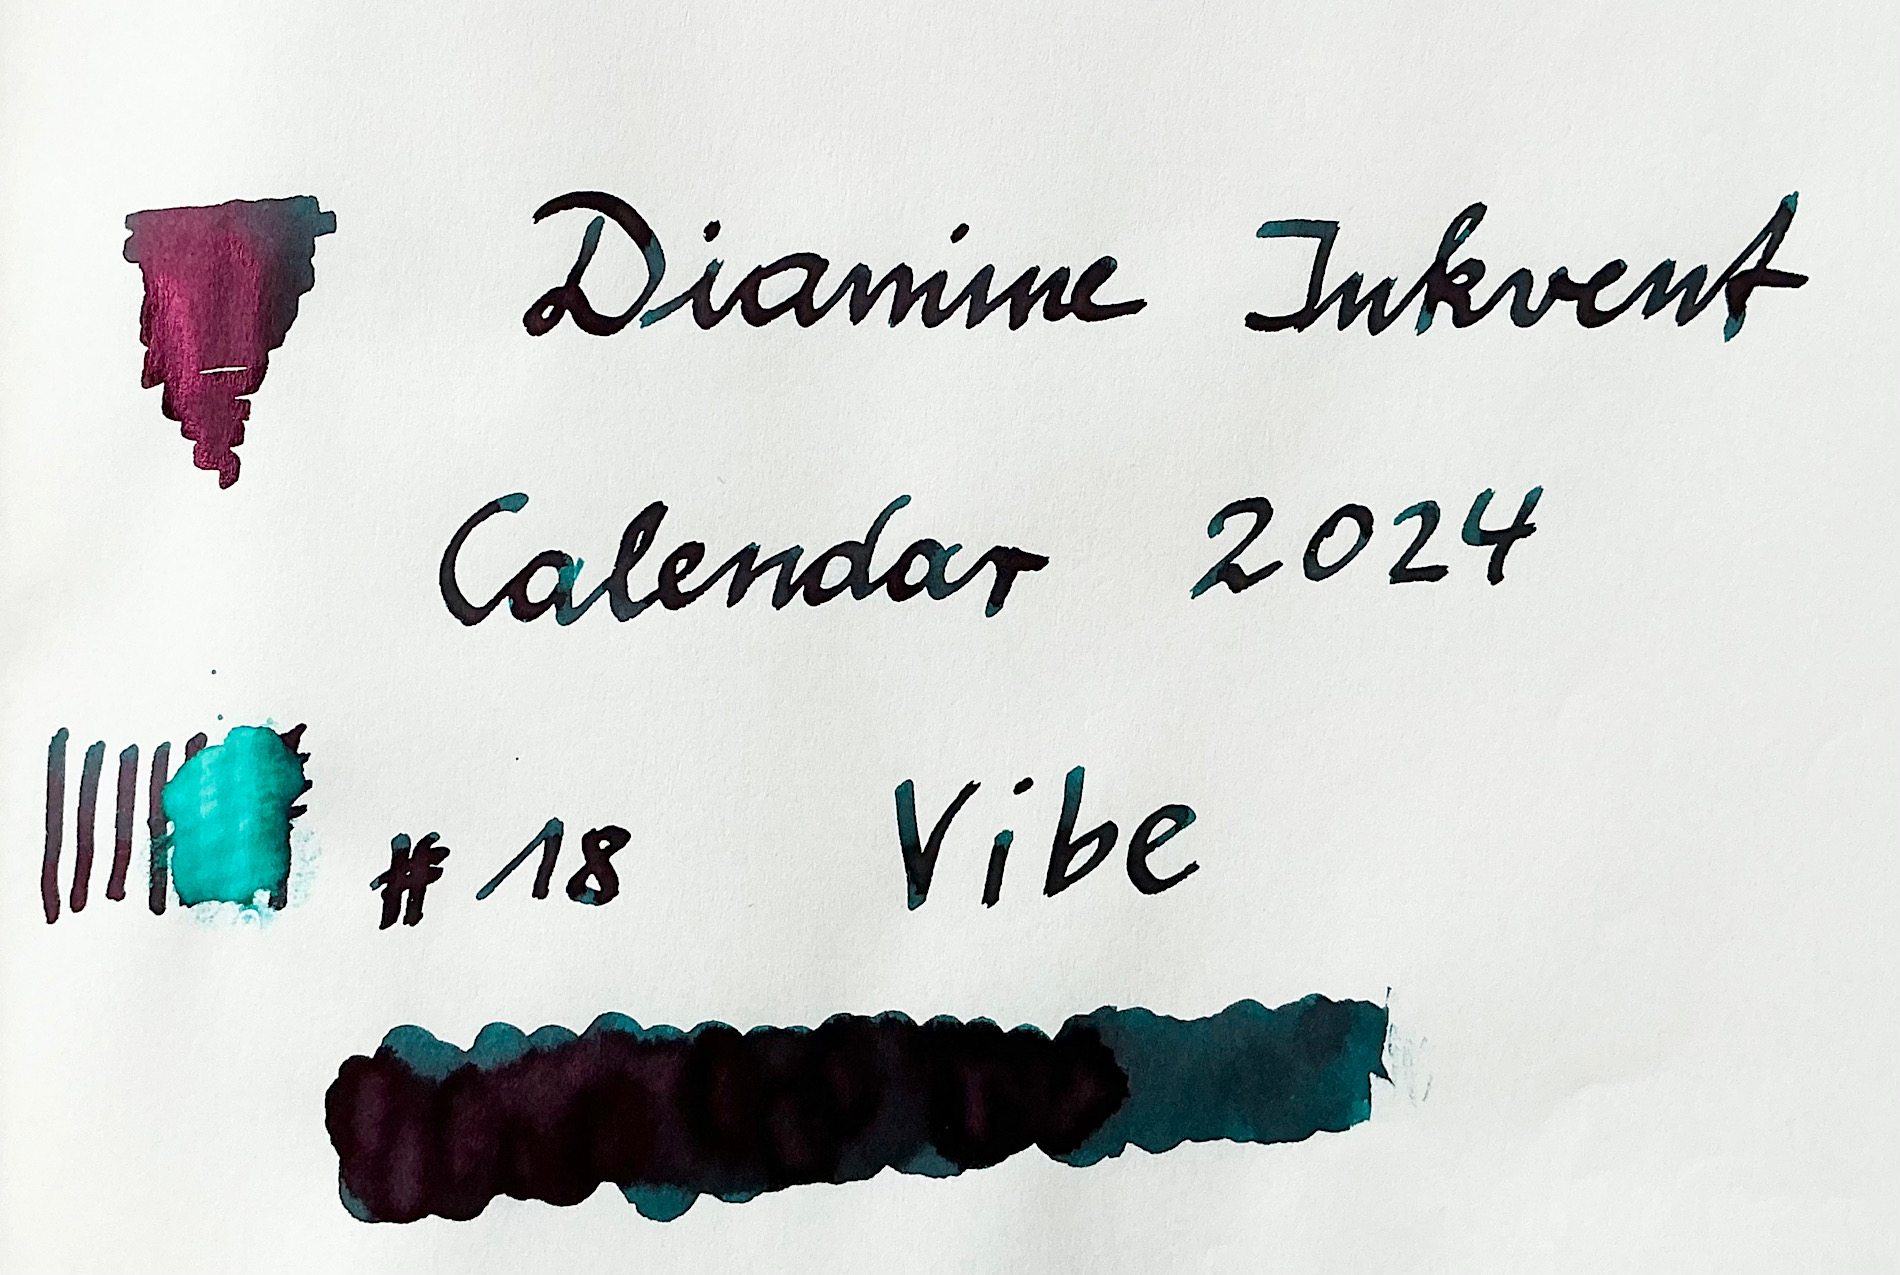 Diamine Inkvent
Calendar 2024
# 18 Vibe